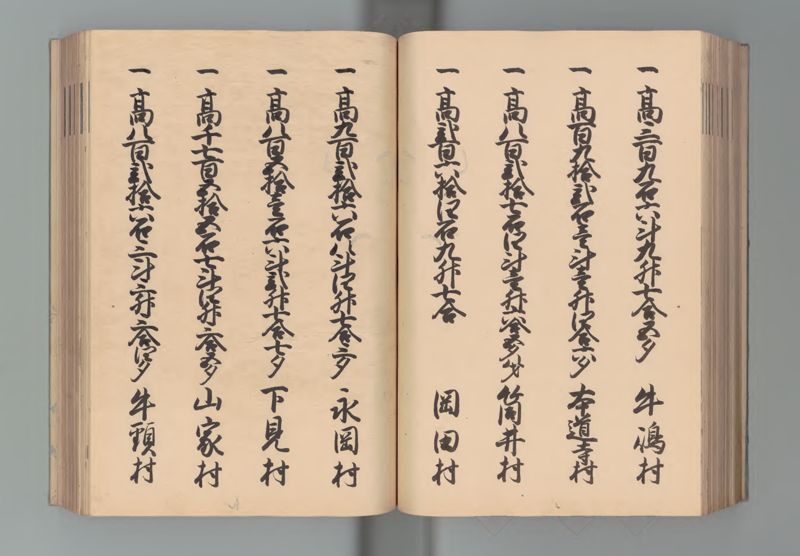 一 高三百九石六斗九升七合五夕 牛嶋村
一 高百九拾弐石壱斗壱升四合六夕 本道寺村
一 高八百弐拾七石四斗壱升六合五夕 筒井村
一 高弐百六拾四石九升七合 岡田村
一 高九百弐拾六石八斗四升七合三夕 永岡村
一 高八百五拾壱石六斗弐升七合七夕 下見村
一 高千七百五拾五石七斗四升三合五夕 山家村
一 高八百弐拾六石三斗三升三合四夕 牛頸村